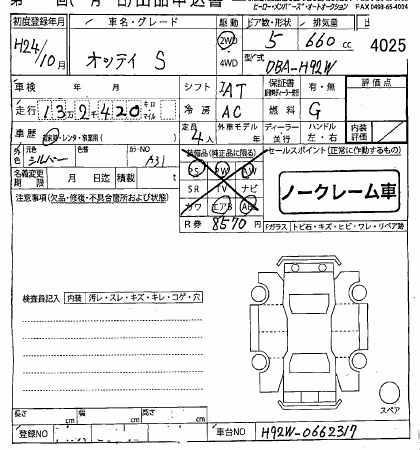 ヒーロー・メンバーズ・オートオークション
FAX 0493-65-4004
初度登録年月 車名・グレード 駆動 ドア数・形状 排気量
H24/10月 オッティ S 2WD 4WD 5 660cc 4025
型式 DBA-H92W
車検 年 月 シフト IAT 保証書 有・無 評価点
走行 13万2千420 キロ マイル 冷房 AC 燃料 G
車歴 自家用・レンタ・教習用( ) 定員 4人 外車モデル 年 ディーラー 並行 ハンドル 左・右 内装
外色 元色 シルバー 色替 カラーNO A31
装備品(純正品に限る) セールスポイント(正常に作動するもの)
名義変更期限 月 日迄 積載 t
PS PW AW
SR TV ナビ
カワ エアB ABS
ノークレーム車
注意事項(欠品・修復・不具合箇所および状態)
R券 8570円
Fガラス トビ石・キズ・ヒビ・ワレ・リペア跡
検査員記入 内装 汚レ・スレ・キズ・キレ・コゲ・穴
スペア
長さ cm 幅 cm 高さ cm
登録NO 車台NO H92W-0662317